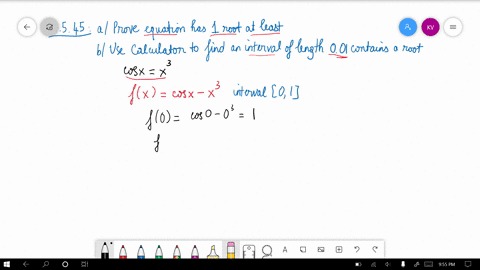 .5.45: a/ Prove equation has 1 root at least
b/ Use Calculator to find an interval of length 0.01 contains a root
cosx = x³
f(x) = cosx - x³ interval [0,1]
f(0) = cos0 - 0³ = 1
f
KV
9:55 PM